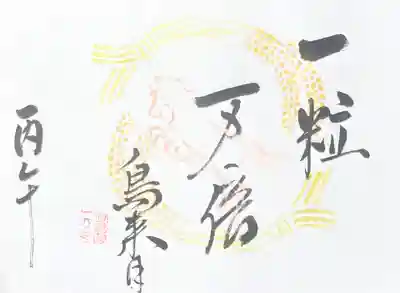 一粒
万倍
鳥来月
丙午